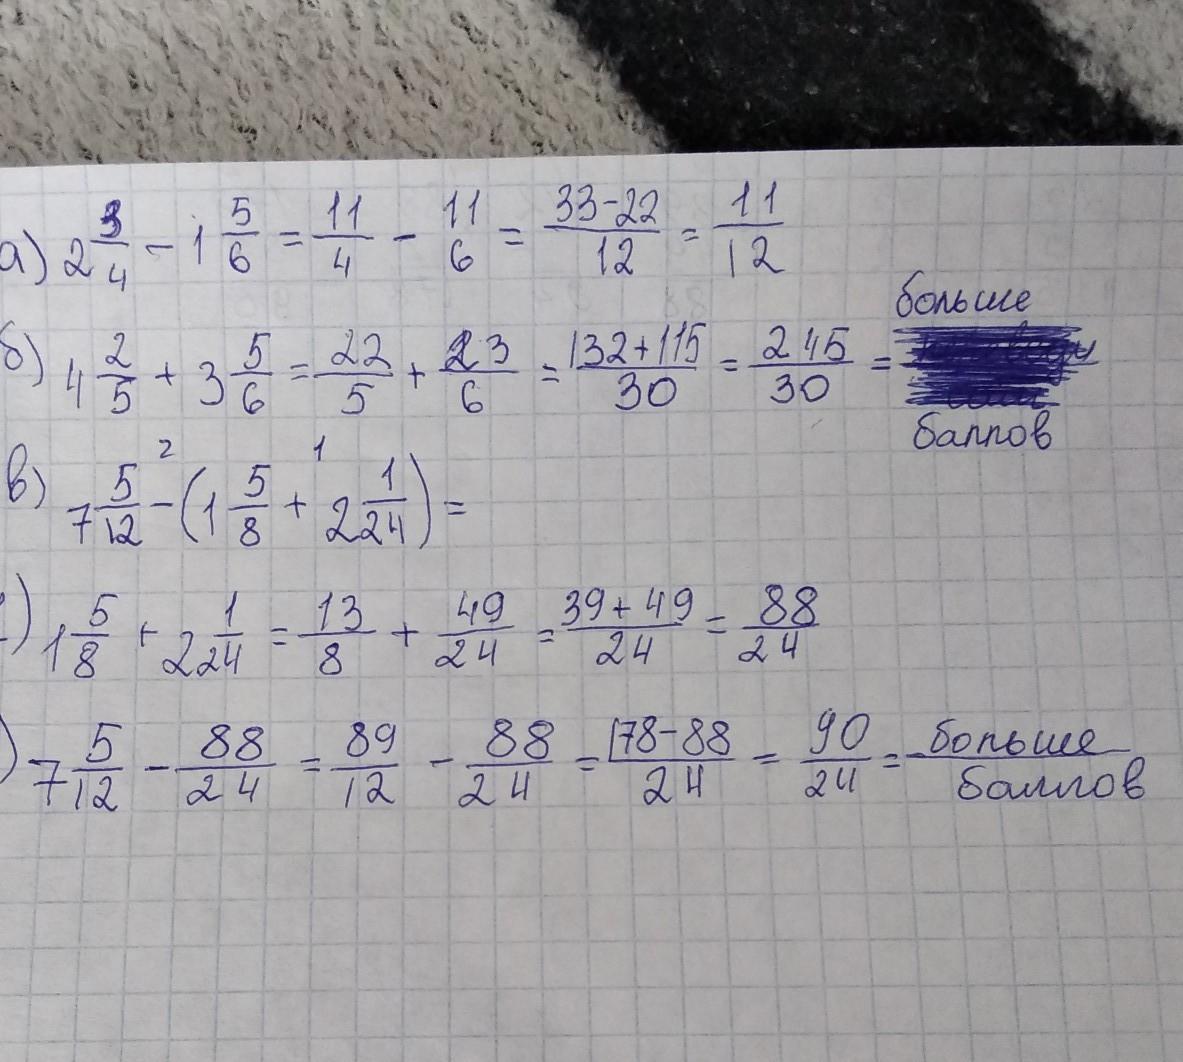 а) 2 3/4 - 1 5/6 = 11/4 - 11/6 = (33-22)/12 = 11/12
б) 4 2/5 + 3 5/6 = 22/5 + 23/6 = (132+115)/30 = 245/30 = больше баллов
в) 7 5/12 -² (1 5/8 +¹ 2 1/24) =
) 1 5/8 + 2 1/24 = 13/8 + 49/24 = (39+49)/24 = 88/24
) 7 5/12 - 88/24 = 89/12 - 88/24 = (178-88)/24 = 90/24 = больше/баллов